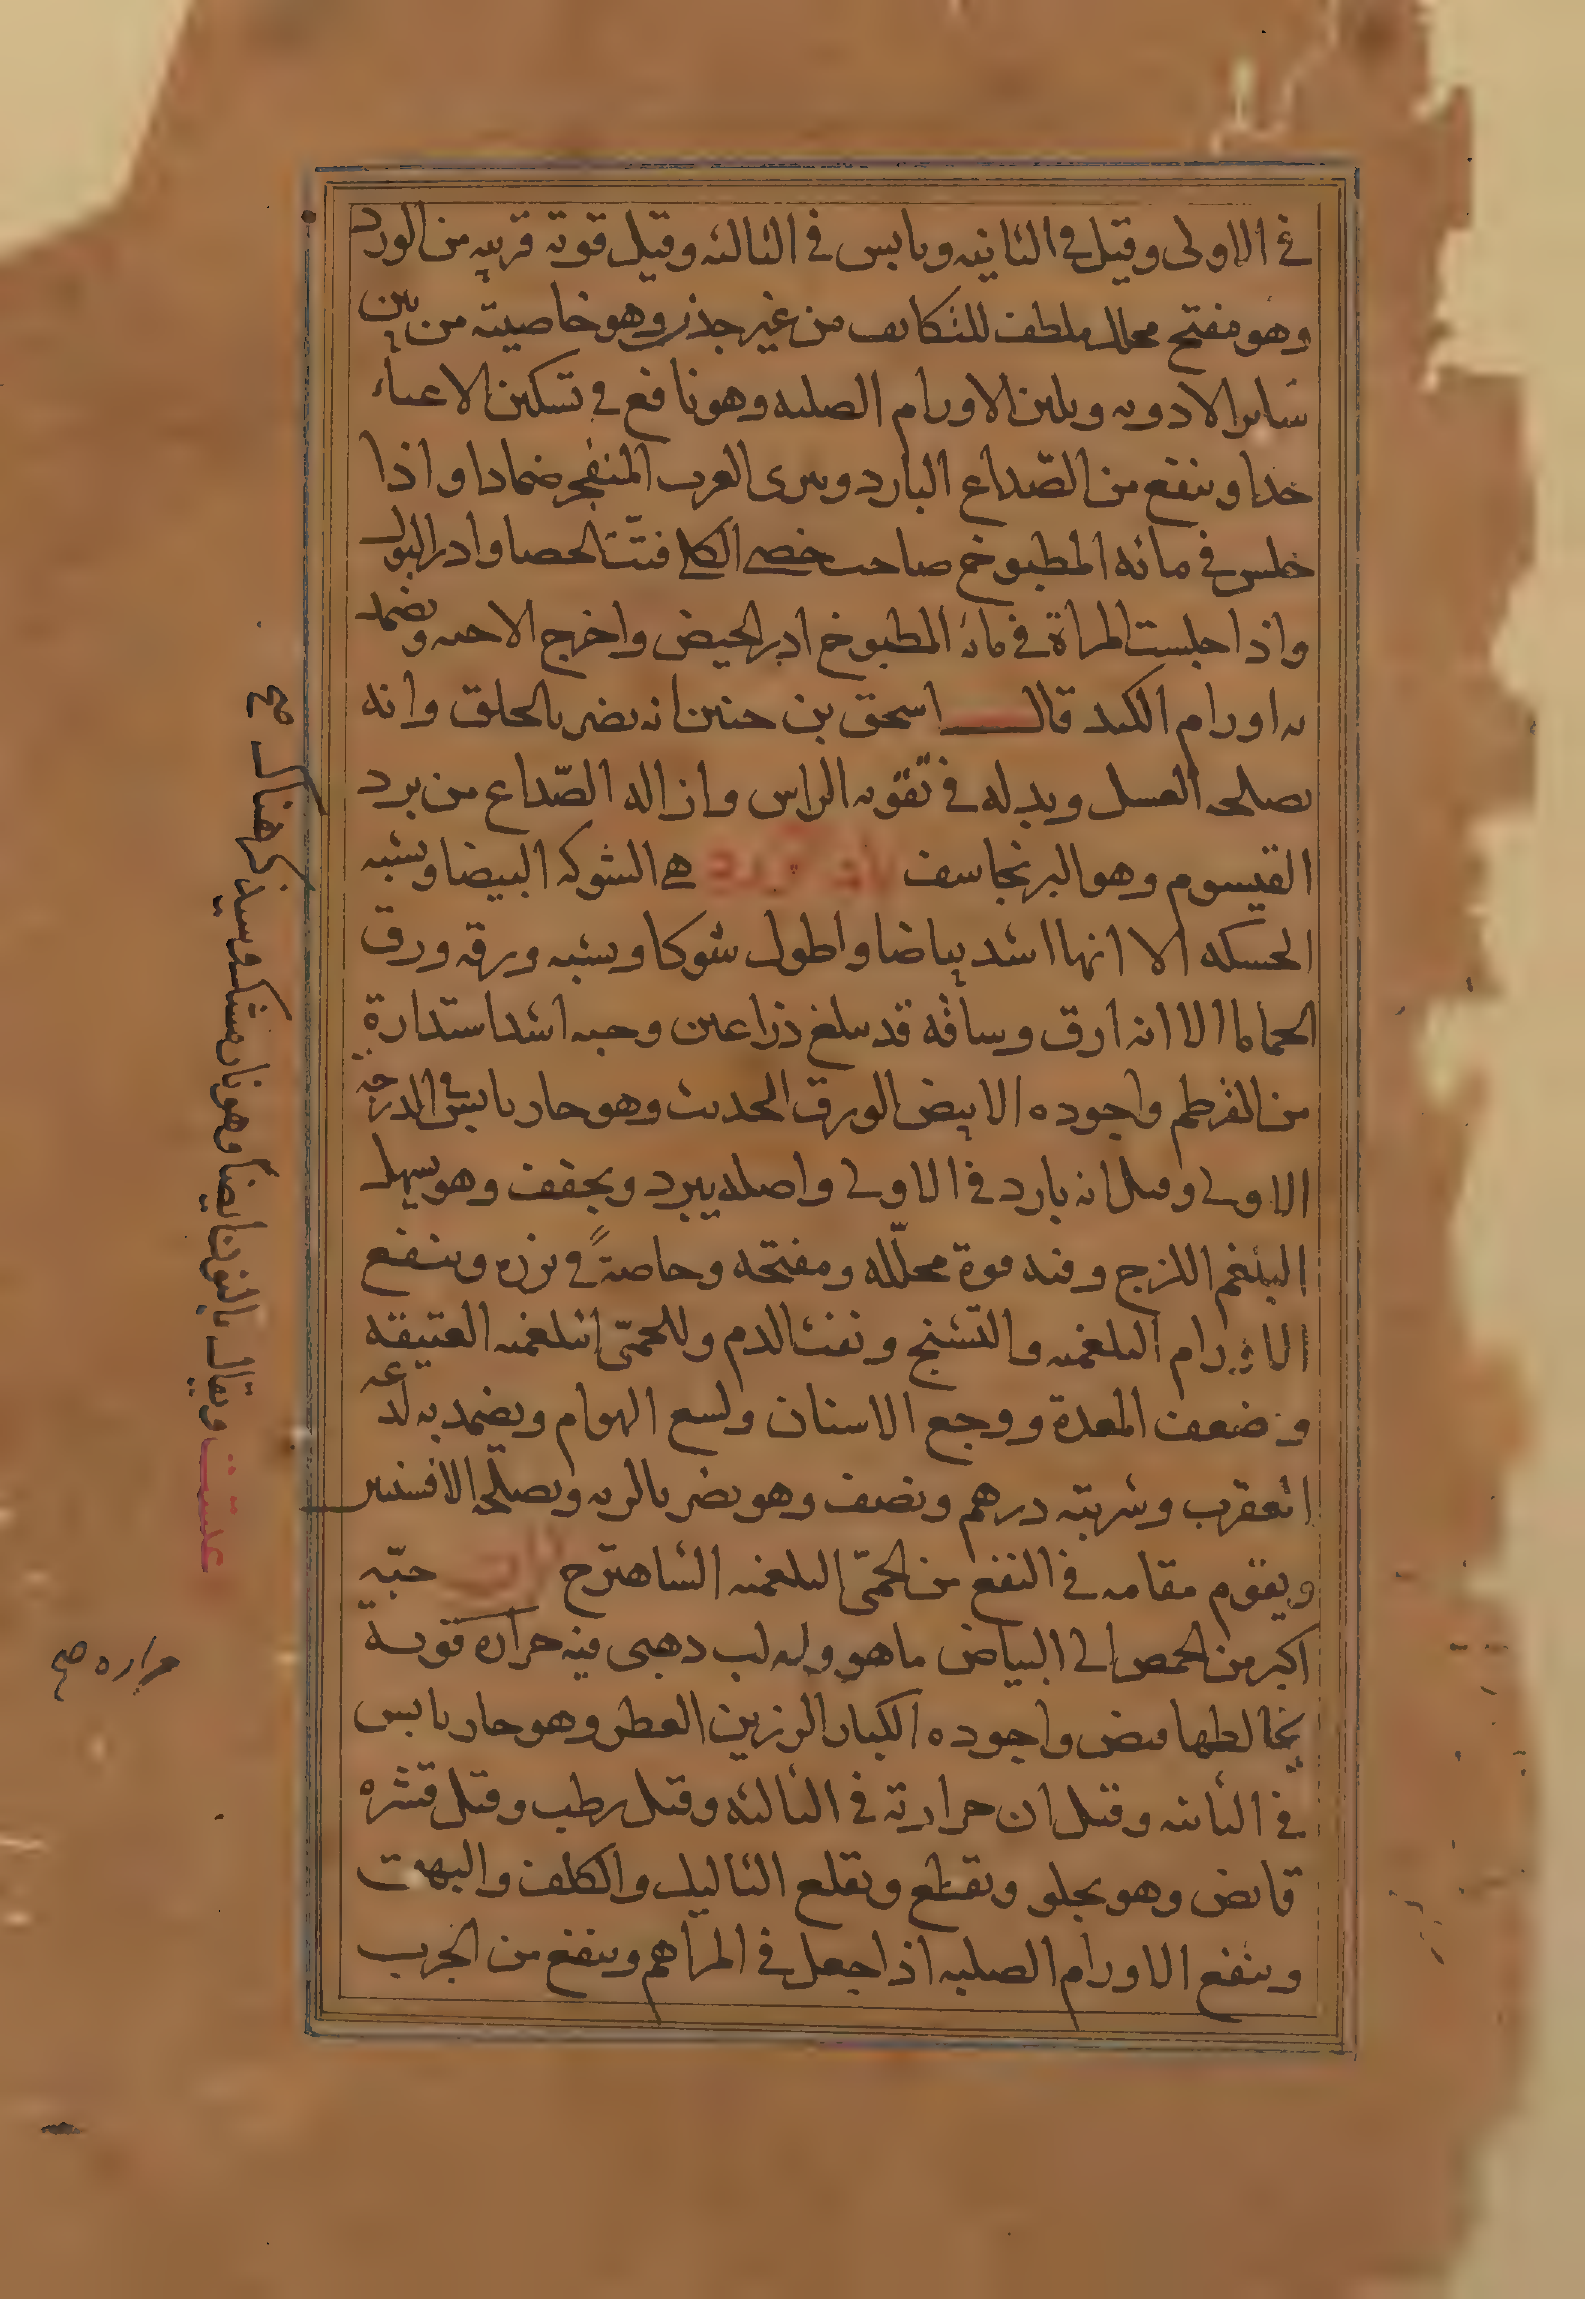 في الاولى وقيل في الثانيه ويابس في الثالثه وقيل قوته قريبه من الورد
وهو مفتح محلل ملطف للتكاثف من غير جذب وهو خاصيته من بين
ساير الادويه ويلين الاورام الصلبه وهو نافع في تسكين الاعياء
جدا وينفع من الصّداع البارد ويبرى الغرب المنفجر ضمادا واذا
جلس في مائه المطبوخ صاحب حصى الكلى فتّت الحصا وادر البول
واذا جلست المراة في مائه المطبوخ ادر الحيض واخرج الاجنه ويضمد
به اورام الكبد قال اسحق بن حنين انه يضر بالحلق وانه
يصلحه العسل وبدله في تقويه الراس وازاله الصّداع من برد
القيسوم وهو البرنجاسف هي الشوكه البيضا ويشبه
الحسكه الا انها اشد بياضا واطول شوكا ويشبه ورقه ورق
الحماما الا انه ارق وساقه قد يبلغ ذراعين وحبه اشد استدارة
من القرطم واجوده الابيض الورق الحديث وهو حار يابس في الدرجه
الاولى وقيل انه بارد في الاولى واصله يبرد ويجفف وهو يسهل
البلغم اللزج وفيه قوة محلّله ومفتحه وخاصةً في بزره وينفع
الاورام البلغميه والتشنج ونفث الدم وللحمّى البلغميه العتيقه
وضعف المعدة ووجع الاسنان ولسع الهوام ويضمد به لدغه
العقرب وشربته درهم ونصف وهو يضر بالريه ويصلحه الافسنتين
ويقوم مقامه في النفع من الحمّى البلغميه الشاهترج حبّه
اكبر من الحمص الى البياض ما هو وله لب دهنى فيه حراره قويه
يخالطها قبض واجوده الكبار الرزين العطر وهو حار يابس
في الثانيه وقيل ان حرارته في الثالثه وقيل رطب وقيل قشره
قابض وهو يجلو ويقطع ويقلع الثاليل والكلف والبهق
وينفع الاورام الصلبه اذا جعل في المراهم وينفع من الجرب
ويقال بالنون ايضا وهو نار مشك وسيذكر هناك صح
حراره صح